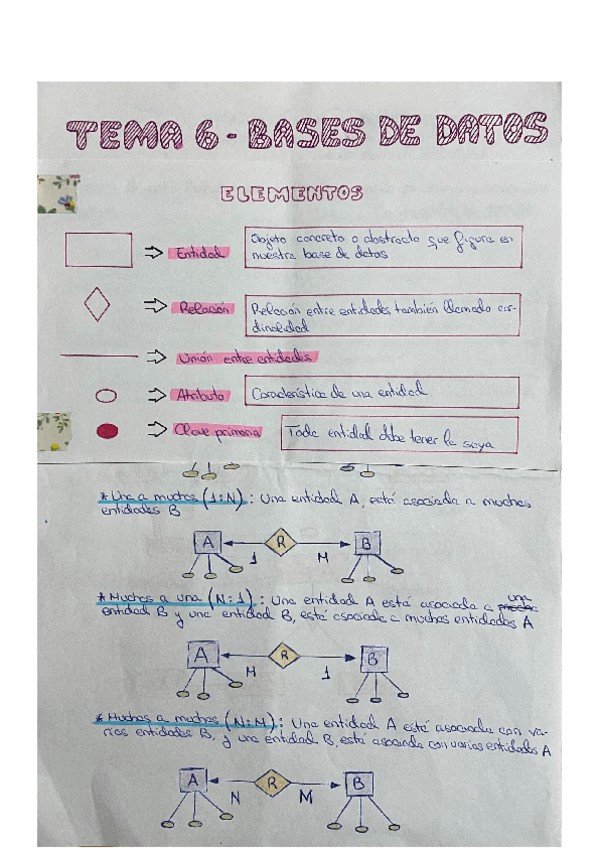 TEMA 6 - BASES DE DATOS
ELEMENTOS
Entidad
Objeto concreto o abstracto que figura en
nuestra base de datos
Relación
Relación entre entidades también llamada car-
dinalidad
Unión entre entidades
Atributo
Característica de una entidad
Clave primaria
Toda entidad debe tener la suya
* Una a muchas (1:N): Una entidad A, está asociada a muchas
entidades B
A R B
1 M
* Muchas a una (N:1): Una entidad A está asociada a una
entidad B y una entidad B, está asociada a muchas entidades A
A R B
M 1
* Muchas a muchas (N:M): Una entidad A está asociada con va-
rias entidades B, y una entidad B, está asociada con varias entidades A
A R B
N M